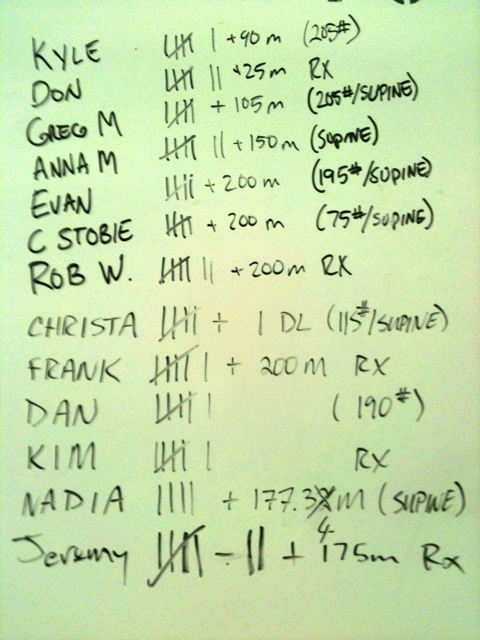 KYLE 𝍸 | +90m (205#)
DON 𝍸 || +25m RX
GREG M 𝍸 + 105m (205#/SUPINE)
ANNA M 𝍸 || + 150m (SUPINE)
EVAN 𝍸 + 200m (195#/SUPINE)
C STOBIE 𝍸 + 200m (75#/SUPINE)
ROB W. 𝍸 || + 200m RX
CHRISTA 𝍸 + 1 DL (115#/SUPINE)
FRANK 𝍸 | + 200M RX
DAN 𝍸 | (190#)
KIM 𝍸 | RX
NADIA |||| + 177.3 M (SUPINE)
4
Jeremy 𝍸 - || + 175m Rx